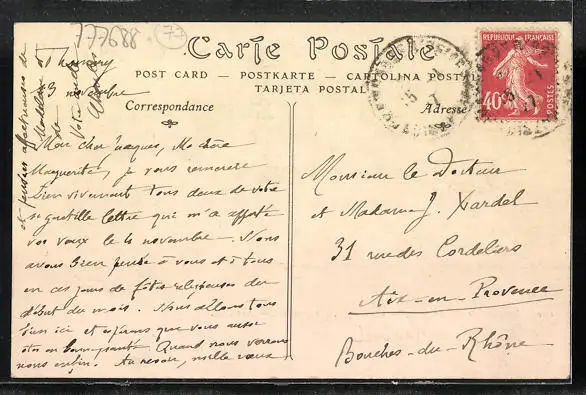 777688
77
Carte Postale
POST CARD — POSTKARTE — CARTOLINA POSTAL
TARJETA POSTAL
Correspondance
Adresse
REPUBLIQUE FRANÇAISE
40c
POSTES
novembre
Mon cher Jacques, Ma chère
Marguerite, je vous remercie
bien vivement tous deux de votre
si gentille lettre qui m'a apporté
vos vœux le 4 novembre. Nous
avons bien pensé à vous et à tous
en ces jours de fêtes religieuses du
début du mois. Nous allons tous
bien ici et espérons que vous aussi
êtes en bonne santé. Quand nous verrons
nous enfin. Au revoir, mille vœux
et pensées affectueuses de
Madeleine et
Votre
Monsieur le Docteur
et Madame J. Xardel
31 rue des Cordeliers
Aix-en-Provence
Bouches-du-Rhône